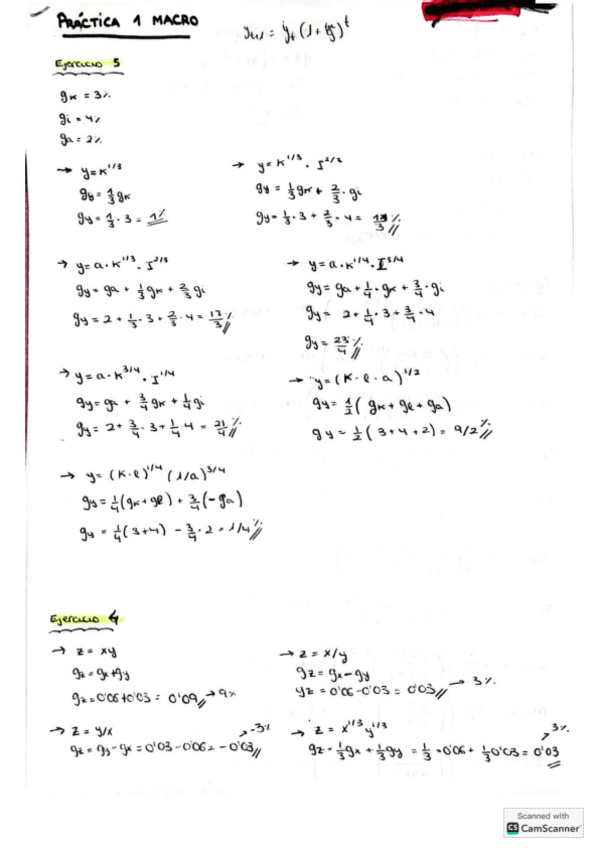 PRÁCTICA 1 MACRO
Ejercicio 5
gk = 3%
gi = 4%
ga = 2%
→ y = k^1/3
gy = 1/3 gk
gy = 1/3 · 3 = 1%
→ y = k^1/3 · I^2/3
gy = 1/3 gk + 2/3 · gi
gy = 1/3 · 3 + 2/3 · 4 = 11/3 %
→ y = a · k^1/3 · I^2/3
gy = ga + 1/3 gk + 2/3 gi
gy = 2 + 1/3 · 3 + 2/3 · 4 = 17/3 %
→ y = a · k^1/4 · I^3/4
gy = ga + 1/4 · gk + 3/4 · gi
gy = 2 + 1/4 · 3 + 3/4 · 4
gy = 23/4 %
→ y = a · k^3/4 · I^1/4
gy = ga + 3/4 gk + 1/4 gi
gy = 2 + 3/4 · 3 + 1/4 · 4 = 21/4 %
→ y = (k · l · a)^1/2
gy = 1/2 (gk + gl + ga)
gy = 1/2 (3 + 4 + 2) = 9/2 %
→ y = (k · l)^1/4 (1/a)^3/4
gy = 1/4 (gk + gl) + 3/4 (-ga)
gy = 1/4 (3+4) - 3/4 · 2 = 1/4 %
Ejercicio 4
→ z = xy
gz = gx + gy
gz = 0'06 + 0'03 = 0'09 → 9%
→ z = x/y
gz = gx - gy
gz = 0'06 - 0'03 = 0'03 → 3%
→ z = y/x
gz = gy - gx = 0'03 - 0'06 = -0'03 → -3%
→ z = x^1/3 y^1/3
gz = 1/3 gx + 1/3 gy = 1/3 · 0'06 + 1/3 0'03 = 0'03 → 3%
Scanned with
CS CamScanner